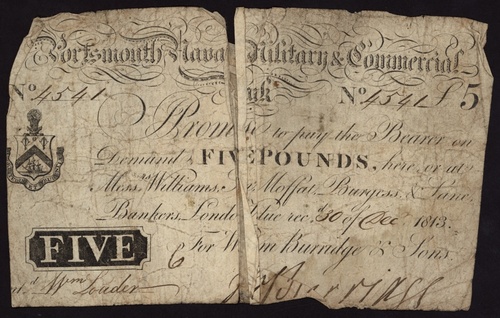 Portsmouth Naval Military & Commercial
Bank
No 4541 No 4541 £5
Promise to pay the Bearer on
Demand FIVE POUNDS, here or at
Messrs Williams, Moffat, Burgess, & Lane,
Bankers, London, Value recd 30 of Dec 1813.
For Wm Burridge & Sons.
FIVE
Entd Wm Louder
Burridge